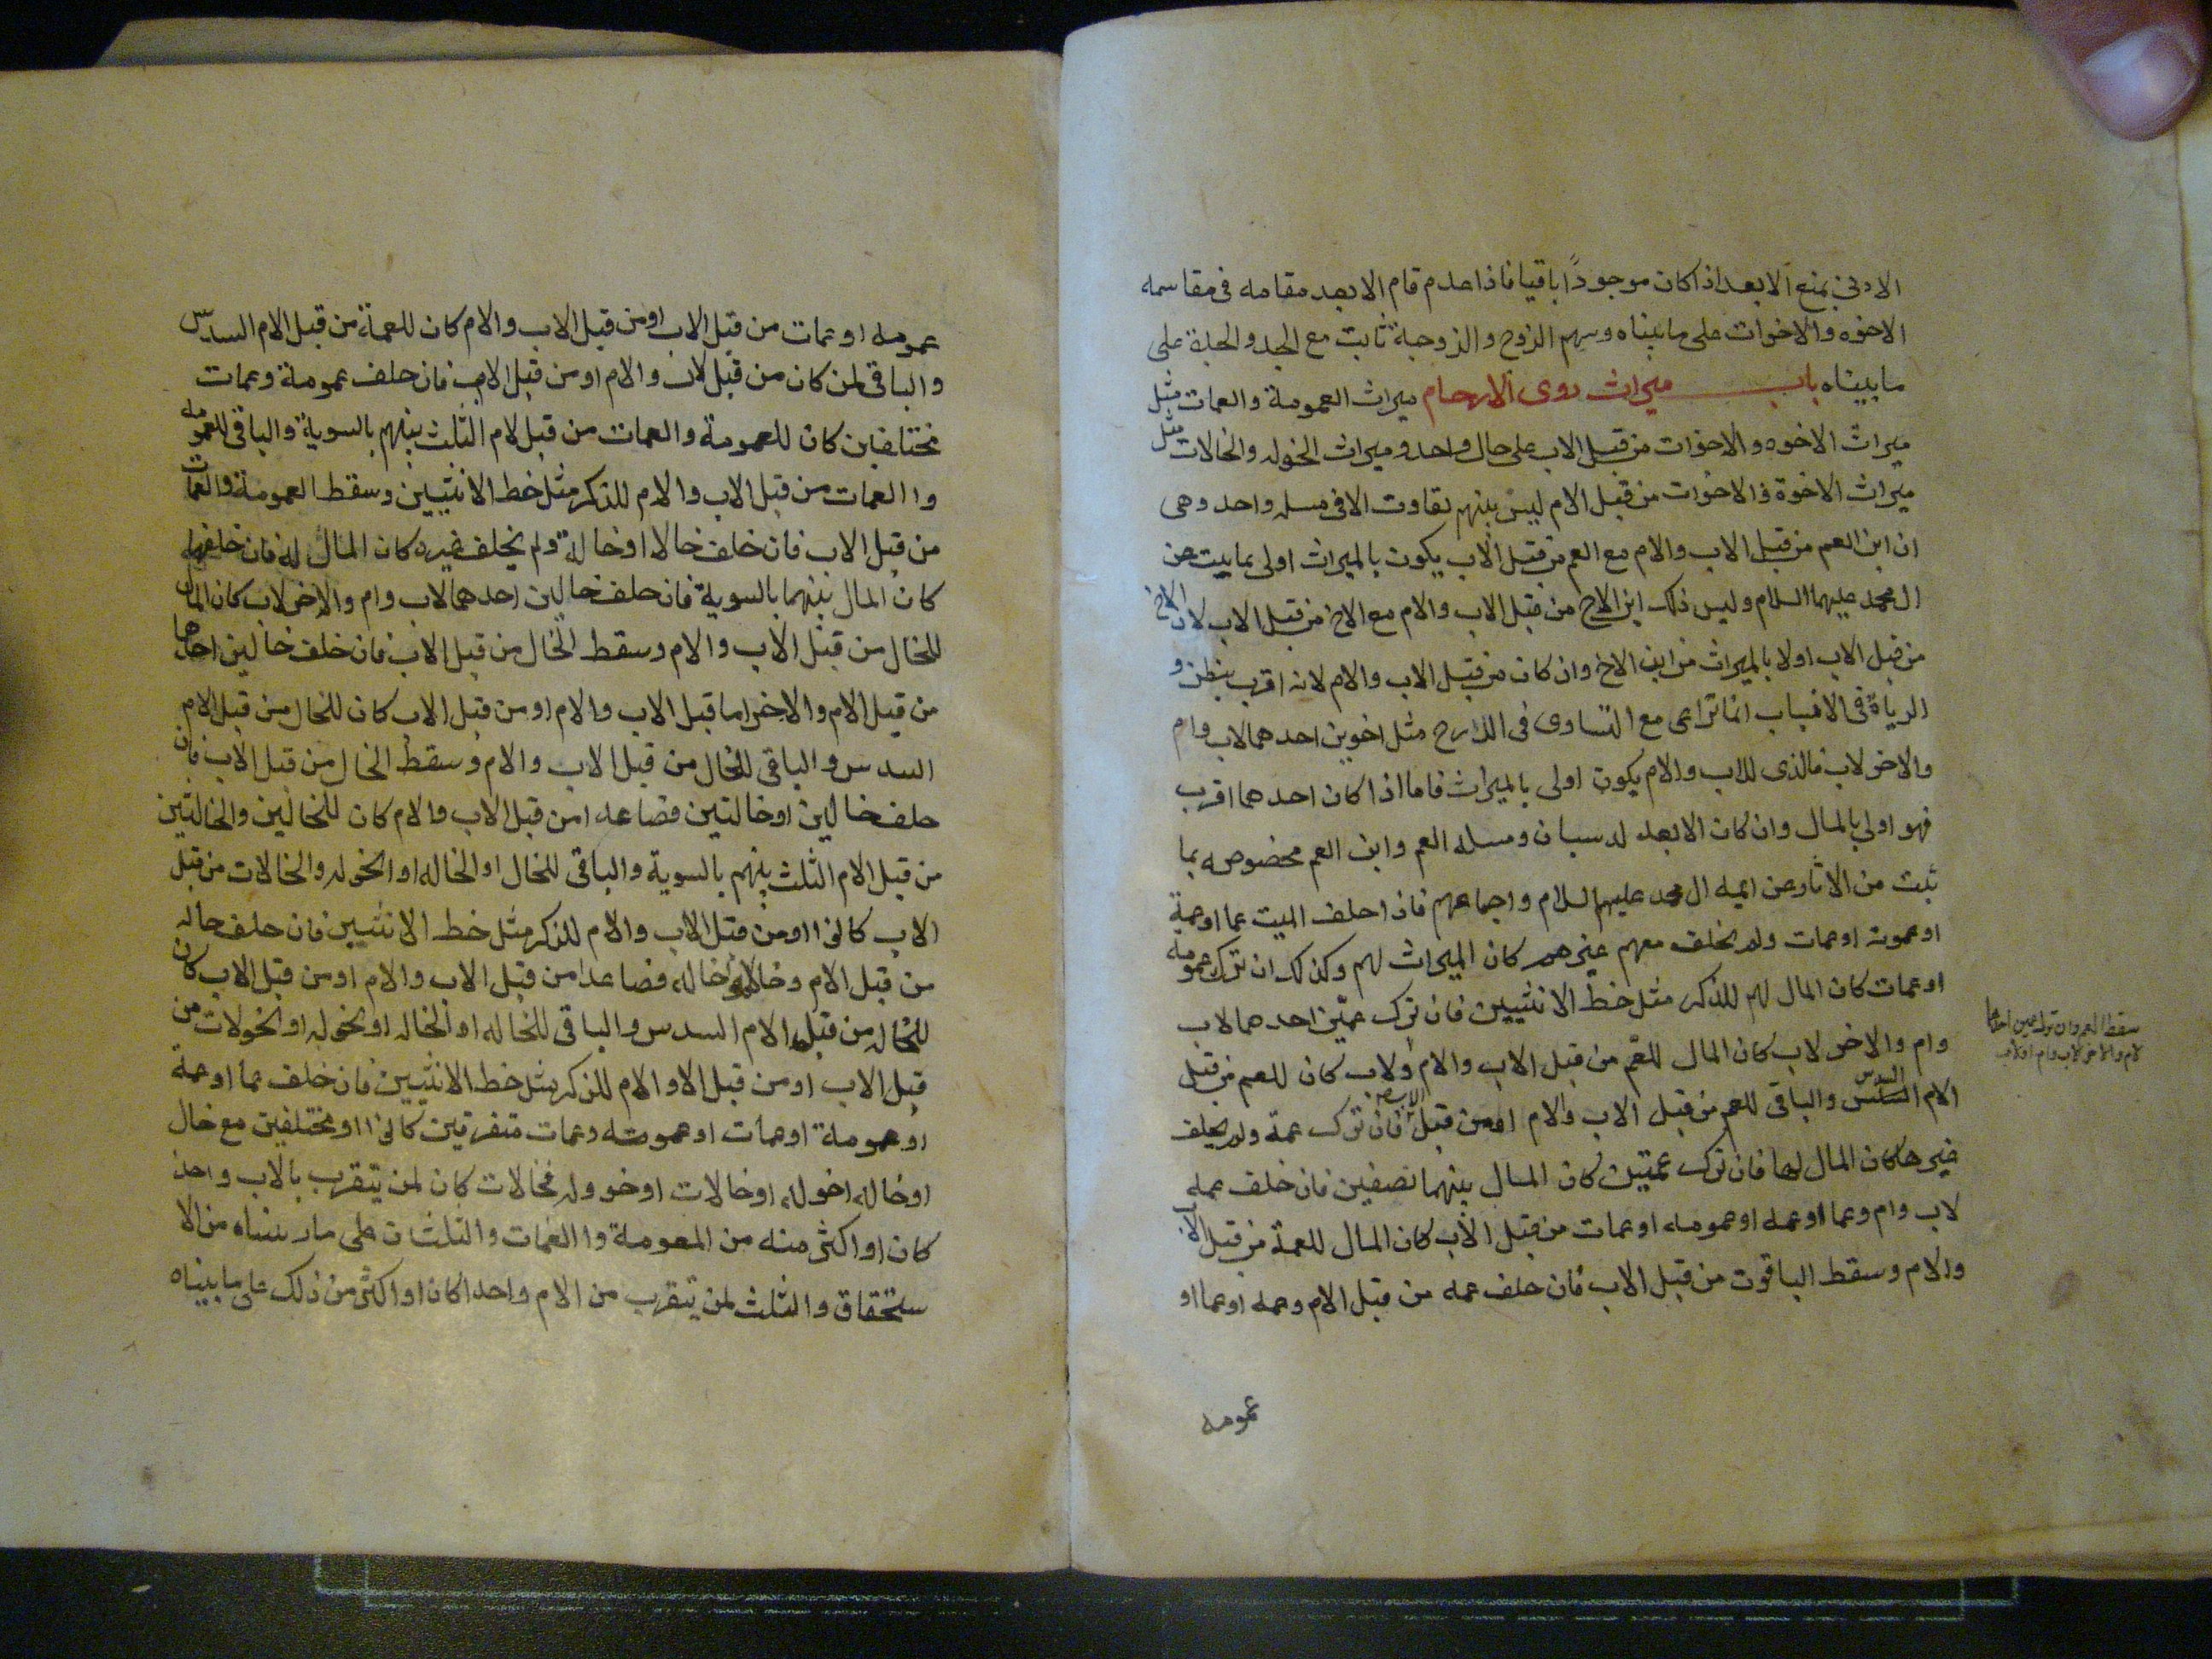 الادنى يمنع الابعد اذا كان موجودًا باقيا فاذا عدم قام الابعد مقامه فى مقاسمه
الاخوه والاخوات على ما بيناه وسهم الزوج والزوجة ثابت مع الجد والجدة على
ما بيناه باب ميراث ذوى الارحام ميراث العمومة والعمات مثل
ميراث الاخوه والاخوات من قبل الاب على حال واحد وميراث الخوله والخالات مثل
ميراث الاخوة والاخوات من قبل الام ليس بينهم تفاوت الا فى مسله واحد وهى
ان ابن العم من قبل الاب والام مع العم من قبل الاب يكون بالميراث اولى بما بيت عن
ال محمد عليهما السلام وليس ذلك ابن الاخ من قبل الاب والام مع الاخ من قبل الاب لان الاخ
من قبل الاب اولا بالميراث من ابن الاخ وان كان من قبل الاب والام لانه اقرب ببطن و
الرياة فى الانساب انما تراعى مع التساوى فى الدارج مثل اخوين احدهما لاب وام
والاخر لاب فالذى للاب والام يكون اولى بالميراث فاما اذا كان احدهما اقرب
فهو اولى بالمال وان كان الابعد لد سبان ومسله العم وابن العم مخصوصه بما
ثبت من الاثار عن ايمه ال محمد عليهم السلام واجماعهم فاذا حلف الميت عما اوعمة
اوعمومه اوعمات ولم يخلف معهم غيرهم كان الميراث لهم وكذلك ان ترك عمومه
اوعمات كان المال لهم للذكر مثل حظ الانثيين فان ترك عمّين احدهما لاب
وام والاخر لاب كان المال للعم من قبل الاب والام ولاب كان للعم من قبل
سقط العم وان ترك عمين احدهما
لام والاخر لاب وام اولاب
الام السدس والباقى للعم من قبل الاب والام اومن قبل الاب فان ترك عمة ولم يخلف
غيرها كان المال لها فان ترك عمتين كان المال بينهما نصفين فان خلف عمه
لاب وام وعما اوعمه اوعمومه اوعمات من قبل الاب كان المال للعمة من قبل الاب
والام وسقط الباقون من قبل الاب فان حلف عمه من قبل الام وعمه اوعما او
عمومه
عمومه اوعمات من قبل الاب اومن قبل الاب والام كان للعمة من قبل الام السدس
والباقى لمن كان من قبل لاب والام اومن قبل الاب فان حلف عمومة وعمات
مختلفين كان للعمومة والعمات من قبل لام الثلث بينهم بالسوية والباقى للعمومه
واالعمات من قبل الاب والام للذكر مثل خط الانثيين وسقط العمومة والعمات
من قبل الاب فان خلف خالا اوخالة ولم يخلف غيره كان المال له فان خلفهما
كان المال بينهما بالسوية فان حلف خالين احدهما لاب وام والاخر لاب كان المال
للخال من قبل الاب والام وسقط الخال من قبل الاب فان خلف خالين احدهما
من قبل الام والاخر اما قبل الاب والام اومن قبل الاب كان للخال من قبل الام
السدس والباقى للخال من قبل الاب والام وسقط الخال من قبل الاب فان
حلف خالين اوخالتين فصاعدا من قبل الاب والام كان للخالين والخالتين
من قبل الام الثلث بينهم بالسوية والباقى للخال اوالخاله اوالخوله والخالات من قبل
الاب كانوا اومن قبل الاب والام للذكر مثل خط الانثيين فان حلف خاله
من قبل الام وخالا او خاله فصاعدا من قبل الاب والام اومن قبل الاب كان
للخاله من قبل الام السدس والباقى للخاله اوالخاله اوالخوله اوالخولات من
قبل الاب اومن قبل الاو الام للذكر مثل خط الانثيين فان خلف عما اوعمة
اوعمومة اوعمات اوعمومته وعمات متفرقين كانوا اومختلفين مع خال
اوخاله اخوله اوخالات اوخووله فخالات كان لمن يتقرب بالاب واحد
كان او اكثر منه من المعومة واالعمات والثلثان على مار بيناه من الا
ستحقاق والثلث لمن يتقرب من الام واحدا كان او اكثر من ذلك على ما بيناه